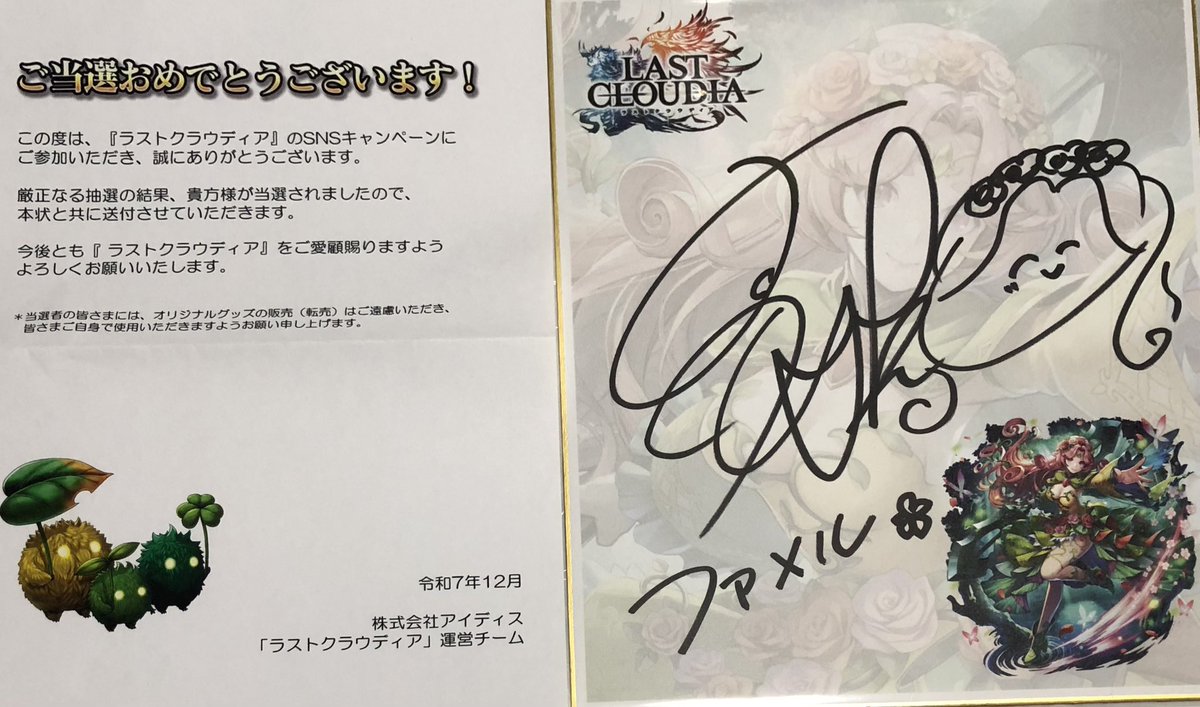 ご当選おめでとうございます！
この度は、『ラストクラウディア』のSNSキャンペーンに
ご参加いただき、誠にありがとうございます。
厳正なる抽選の結果、貴方様が当選されましたので、
本状と共に送付させていただきます。
今後とも『 ラストクラウディア』をご愛顧賜りますよう
よろしくお願いいたします。
＊当選者の皆さまには、オリジナルグッズの販売（転売）はご遠慮いただき、
皆さまご自身で使用いただきますようお願い申し上げます。
令和7年12月
株式会社アイディス
「ラストクラウディア」運営チーム
LAST
CLOUDIA
ラストクラウディア
ファメル